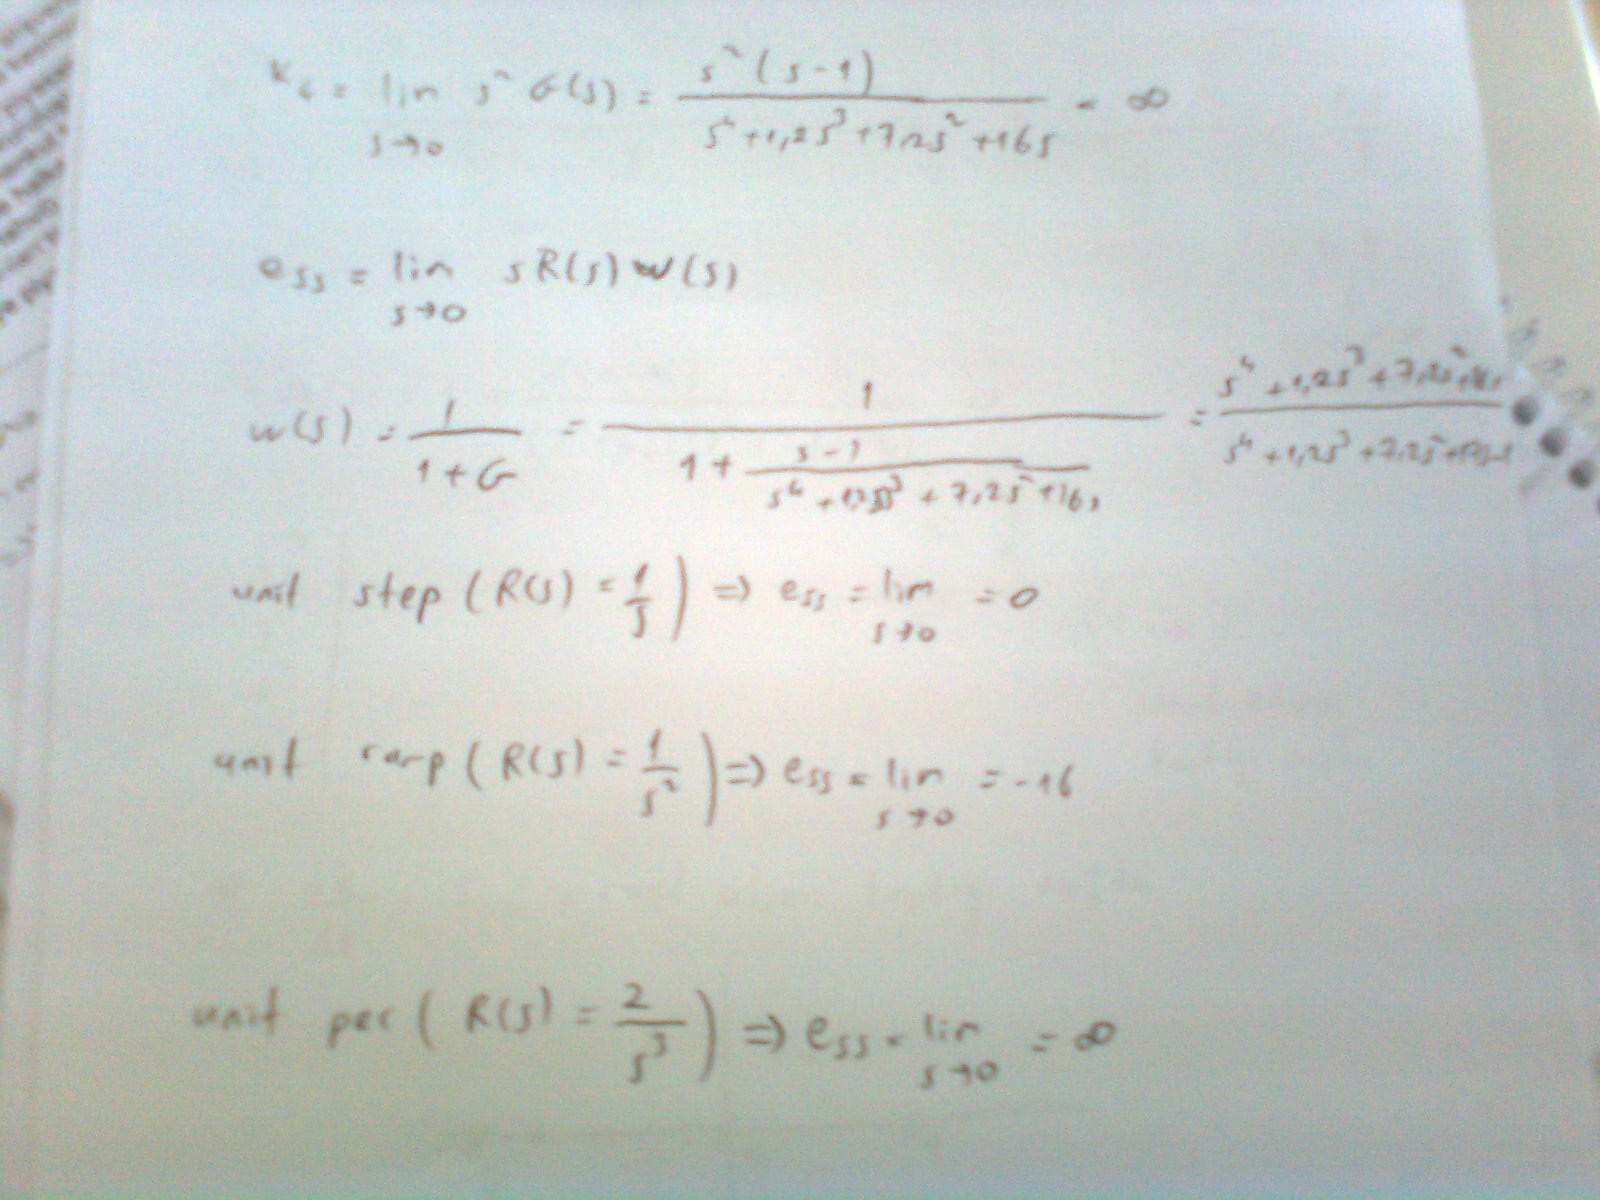 K₆ = lim s² G(s) = s²(s-1) / s⁴+1,2s³+7,2s²+16s = ∞
s→0
e_ss = lim s R(s) w(s)
s→0
w(s) = 1 / 1+G = 1 / 1 + s-1 / s⁴+1,2s³+7,2s²+16s = s⁴+1,2s³+7,2s²+16s / s⁴+1,2s³+7,2s²
unit step (R(s) = 1/s) ⇒ e_ss = lim = 0
s→0
unit ramp (R(s) = 1/s²) ⇒ e_ss = lim = -16
s→0
unit per (R(s) = 2/s³) ⇒ e_ss = lim = ∞
s→0